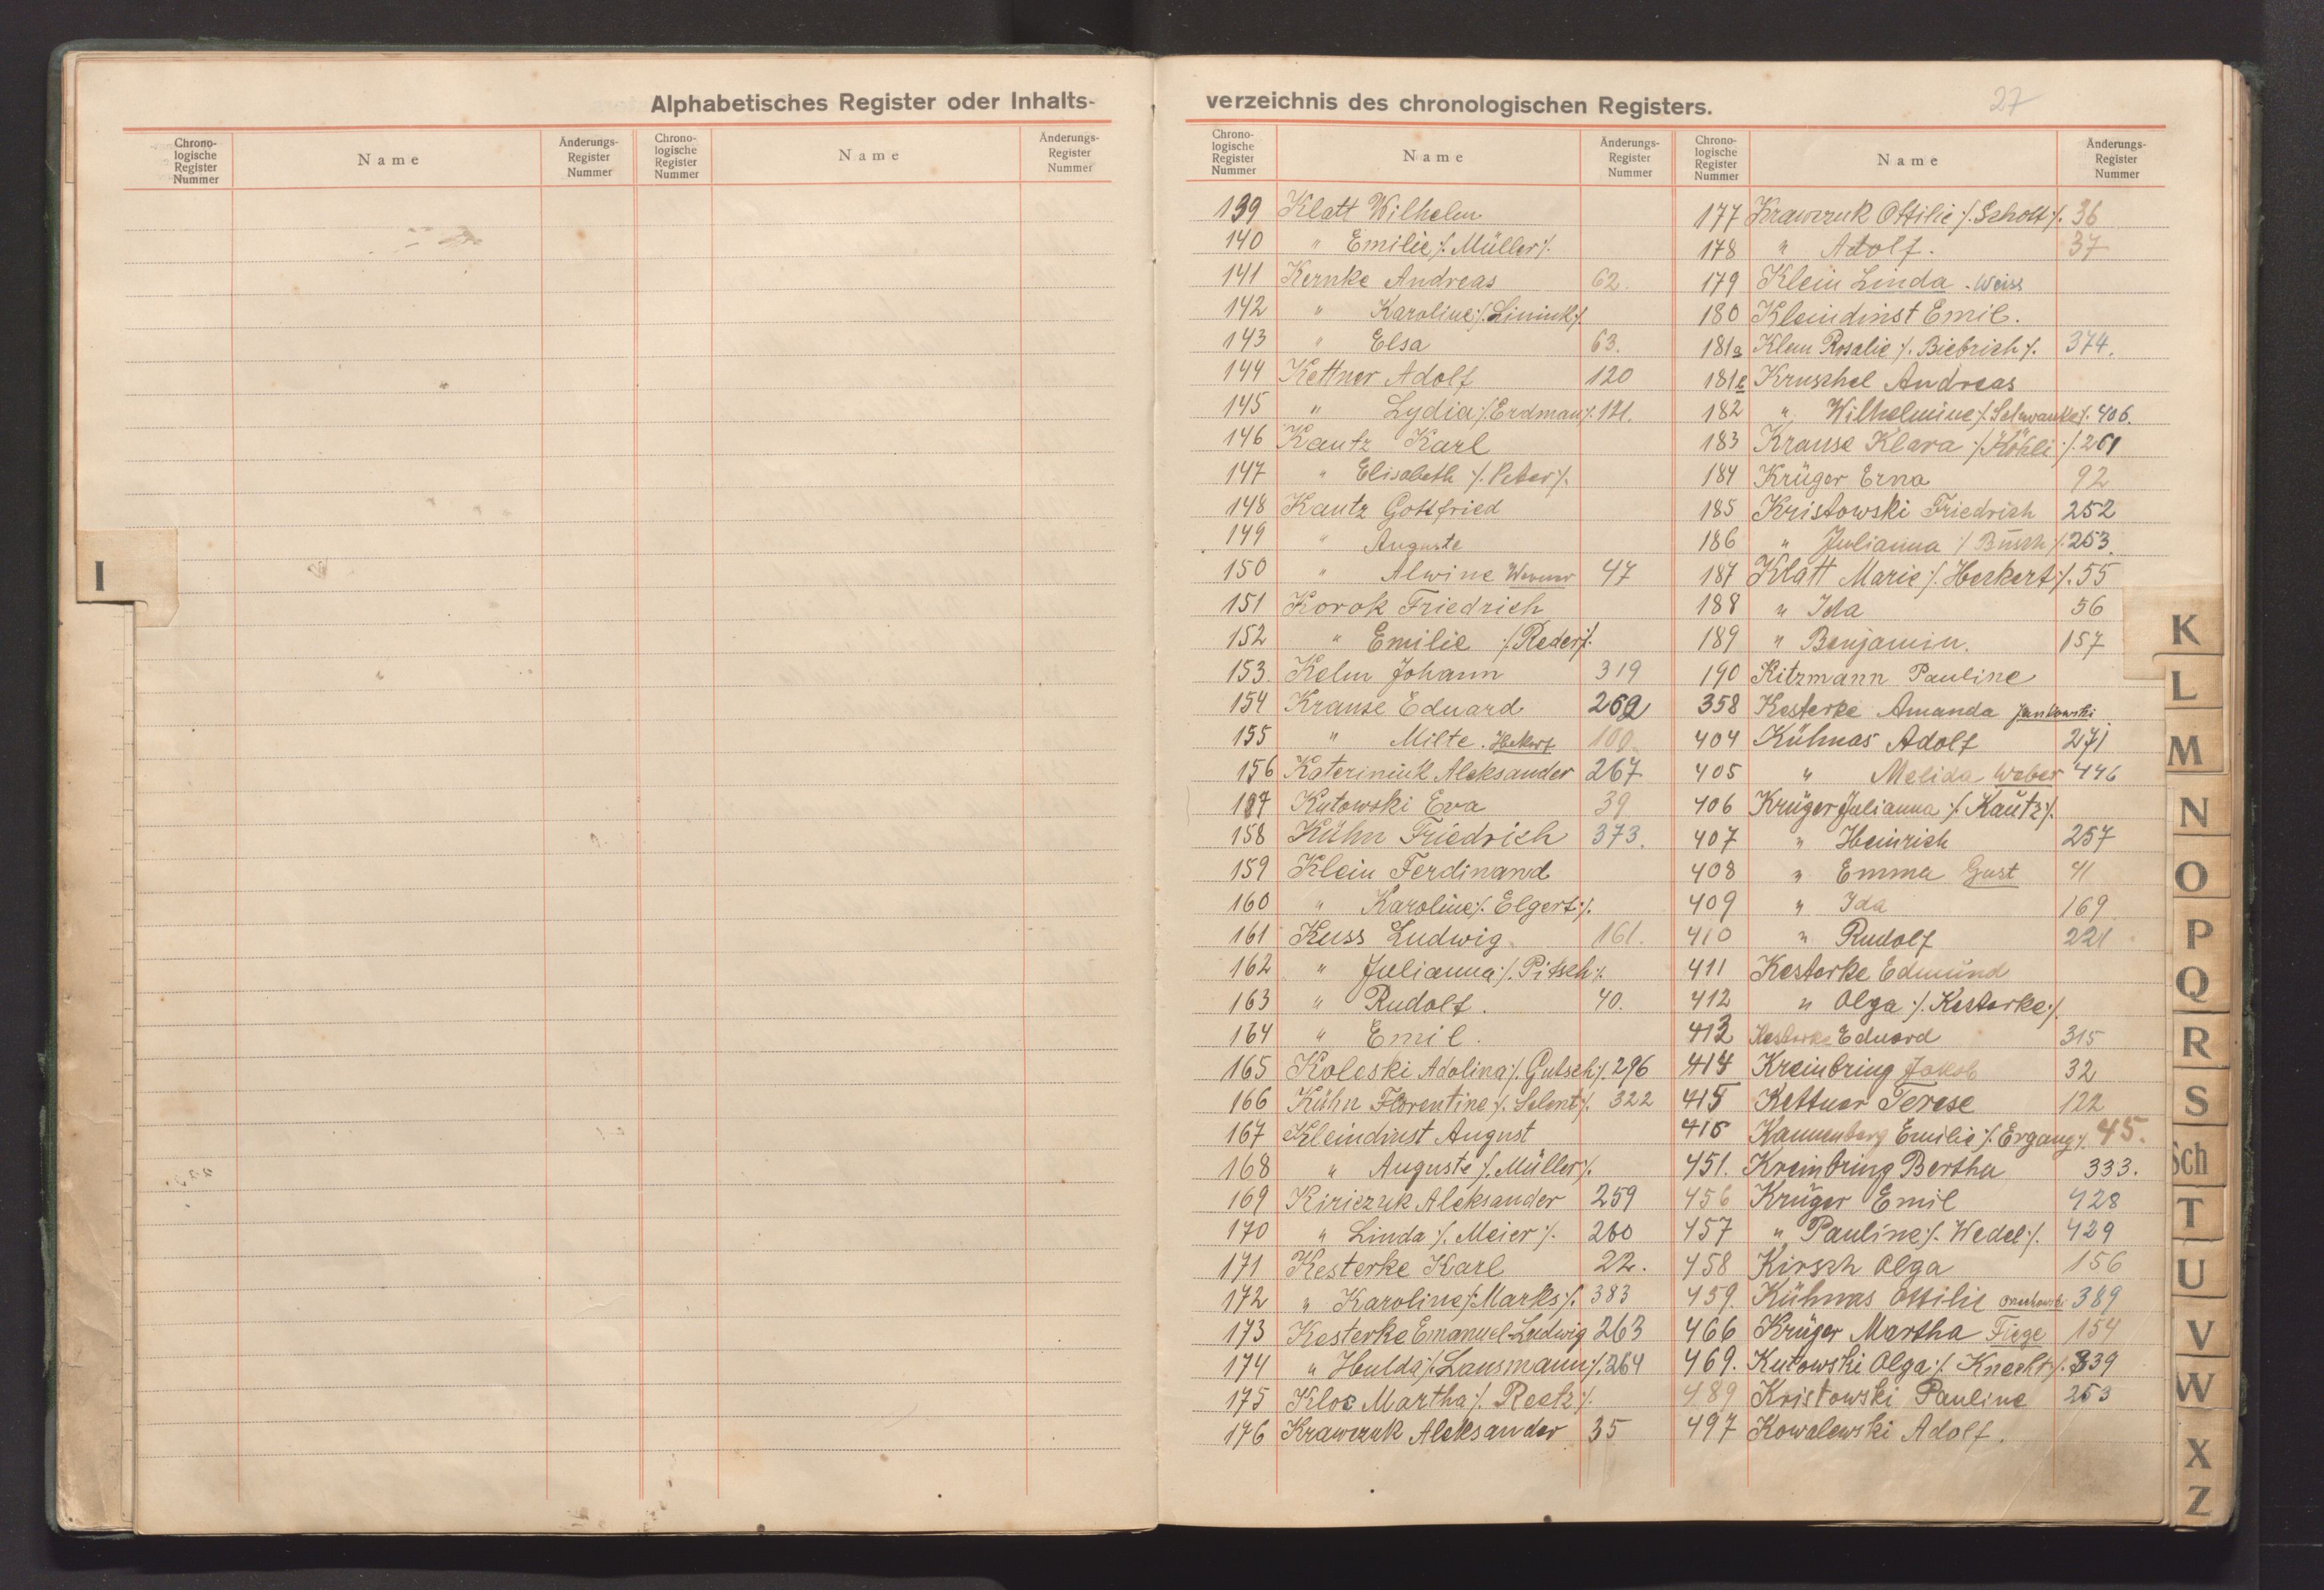 Alphabetisches Register oder Inhalts-
Chrono-
logische
Register
Nummer
Name
Änderungs-
Register
Nummer
Chrono-
logische
Register
Nummer
Name
Änderungs-
Register
Nummer
I
verzeichnis des chronologischen Registers.
27
Chrono-
logische
Register
Nummer
Name
Änderungs-
Register
Nummer
139 Klatt Wilhelm
140 " Emilie ./. Müller ./.
141 Kernke Andreas 62.
142 " Karoline ./. Liniuk ./.
143 " Elsa 63.
144 Kettner Adolf 120
145 " Lydia ./. Erdman ./. 121.
146 Kautz Karl
147 " Elisabeth ./. Peter ./.
148 Kautz Gottfried
149 " Auguste
150 " Alwine Werner 47
151 Korok Friedrich
152 " Emilie ./. Reder ./.
153. Kelm Johann 319
154 Krause Eduard 262
155 " Milte. Hekert 100
156 Kateriniuk Aleksander 267
157 Kutowski Eva 39
158 Kühn Friedrich 373.
159 Klein Ferdinand
160 " Karoline ./. Elgert ./.
161 Kuss Ludwig 161.
162 " Julianna ./. Pitsch ./.
163 " Rudolf. 40.
164 " Emil.
165 Koleski Adolina ./. Gutsch ./. 296
166 Kühn Florentine ./. Selent ./. 322
167 Kleindinst August
168 " Auguste ./. Müller ./.
169 Kiriczuk Aleksander 259
170 " Linda ./. Meier ./. 260
171 Kesterke Karl 22.
172 " Karoline ./. Marks ./. 383
173 Kesterke Emanuel-Ludwig 263
174 " Hulda ./. Lansmann ./. 264
175 Klos Martha ./. Reetz ./.
176 Krawczuk Aleksander 35
Chrono-
logische
Register
Nummer
Name
Änderungs-
Register
Nummer
177 Krawczuk Ottilie ./. Scholt ./. 36
178 " Adolf. 37
179 Klein Linda - Weiss
180 Kleindinst Emil.
181a Klein Rosalie ./. Biebrich ./. 374.
181b Kruschel Andreas
182 " Wilhelmine ./. Schwanke ./. 406.
183 Krause Klara ./. Köhli ./. 261
184 Krüger Erna 92
185 Kristowski Friedrich 252
186 " Julianna ./. Busch ./. 253.
187 Klatt Marie ./. Herkert ./. 55
188 " Ida 56
189 " Benjamin. 157
190 Kitzmann Pauline
358 Kesterke Amanda Jankowski
404 Kühnas Adolf 271
405 " Melida Weber 446
406 Krüger Julianna ./. Kautz ./.
407 " Heinrich 257
408 " Emma Gust 41
409 " Ida 169
410 " Rudolf 221
411 Kesterke Edmund
412 " Olga ./. Kesterke ./.
413 Kesterke Eduard 315
414 Kreinbring Jakob 32
415 Kettner Terese 122
416 Kannenberg Emilie ./. Ergang ./. 45.
451. Kreinbring Bertha 333.
456 Krüger Emil 428
457 " Pauline ./. Wedel ./. 429
458 Kirsch Olga 156
459. Kühnas Ottilie 389
466 Krüger Martha Fiege 154
469. Kutowski Olga ./. Knecht ./. 339
489 Kristowski Pauline 253
497 Kowalewski Adolf.
K
L
M
N
O
P
Q
R
S
Sch
T
U
V
W
X
Z